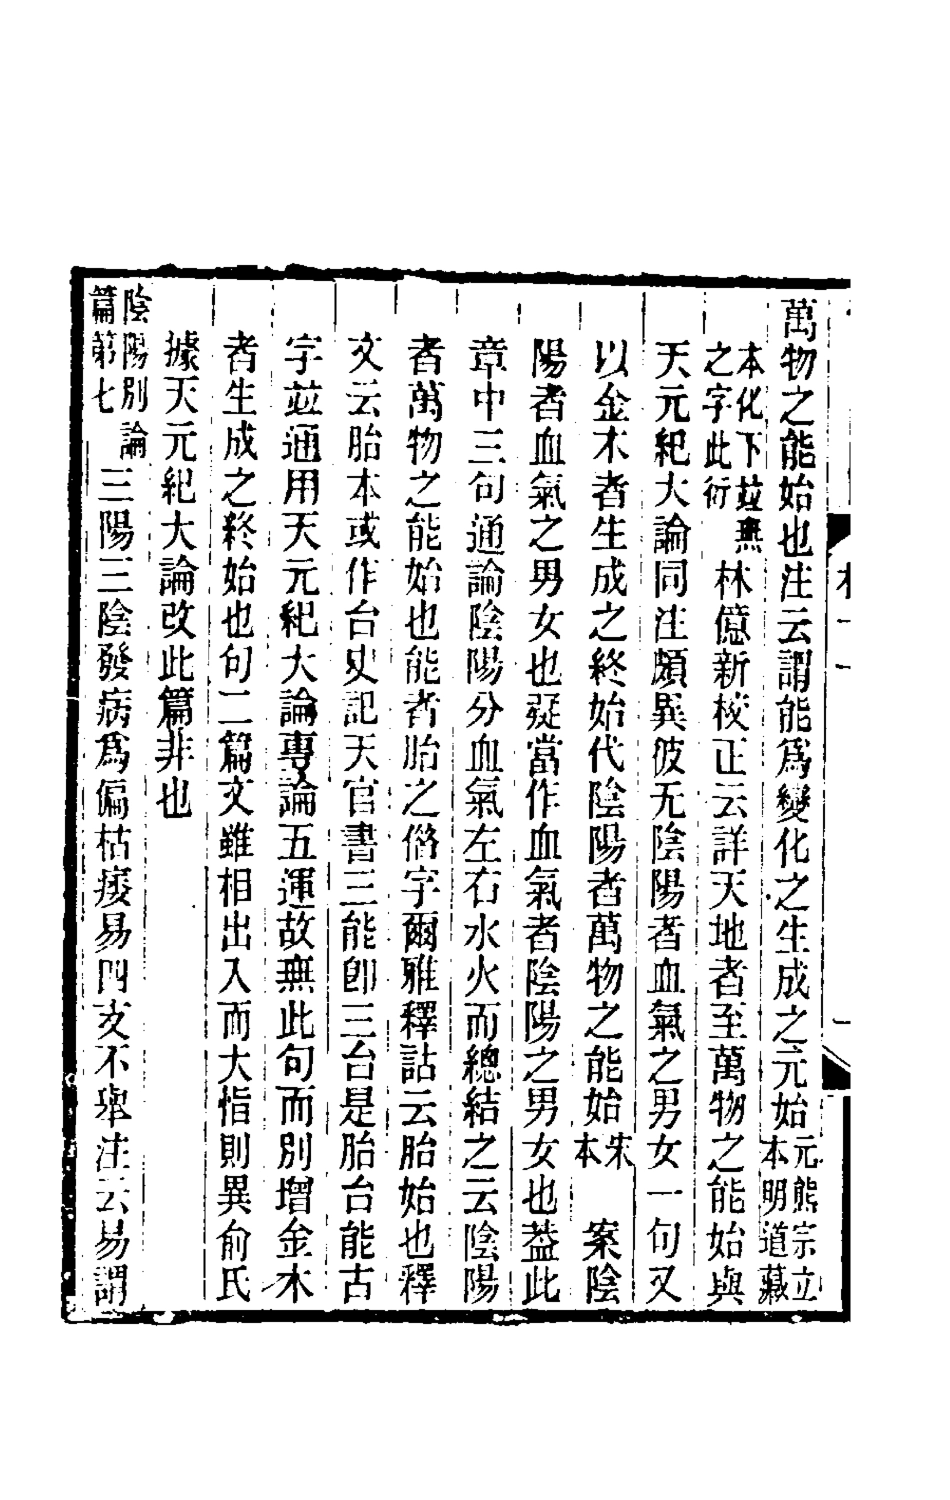 萬物之能始也注云謂能爲變化之生成之元始元熊宗立本明道藏
本化下並無之字此衍 林億新校正云詳天地者至萬物之能始與
天元紀大論同注頗異彼无陰陽者血氣之男女一句又
以金木者生成之終始代陰陽者萬物之能始宋本 案陰
陽者血氣之男女也疑當作血氣者陰陽之男女也蓋此
章中三句通論陰陽分血氣左右水火而總結之云陰陽
者萬物之能始也能者胎之偹字爾雅釋詁云胎始也釋
文云胎本或作台史記天官書三能卽三台是胎台能古
字並通用天元紀大論專論五運故無此句而別增金木
者生成之終始也句二篇文雖相出入而大恉則異俞氏
據天元紀大論改此篇非也
陰陽別論篇第七 三陽三陰發病爲偏枯痿易四支不舉注云易謂